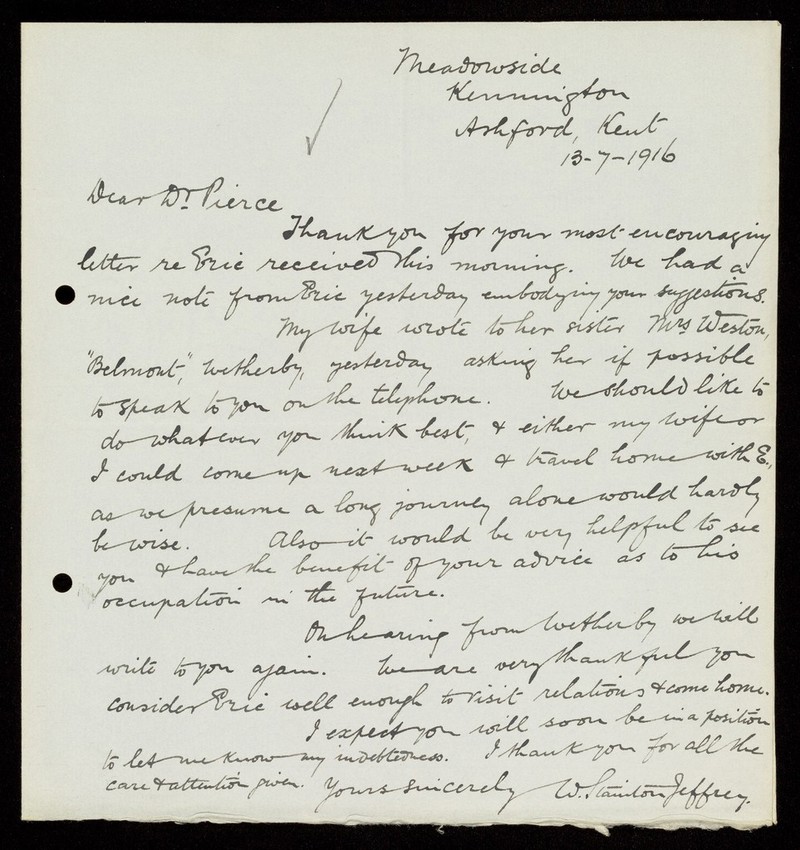 Meadowside
Kennington
Ashford, Kent
13-7-1916
Dear Dr Pierce
Thank you for your most encouraging
letter re Eric received this morning. We had a
nice note from Eric yesterday embodying your suggestions.
My wife wrote to her sister Mrs Weston,
"Belmont", Wetherby, yesterday asking her if possible
to speak to you on the telephone. We should like to
do whatever you think best, & either my wife or
I could come up next week & travel home with E.,
as we presume a long journey alone would hardly
be wise. Also it would be very helpful to see
you & have the benefit of your advice as to his
occupation in the future.
On hearing from Wetherby we will
write to you again. We are very thankful you
consider Eric well enough to visit relations & come home.
I expect you will soon be in a position
to let me know my indebtedness. I thank you for all the
care & attention given. Yours sincerely W. Stanton Jeffrey.